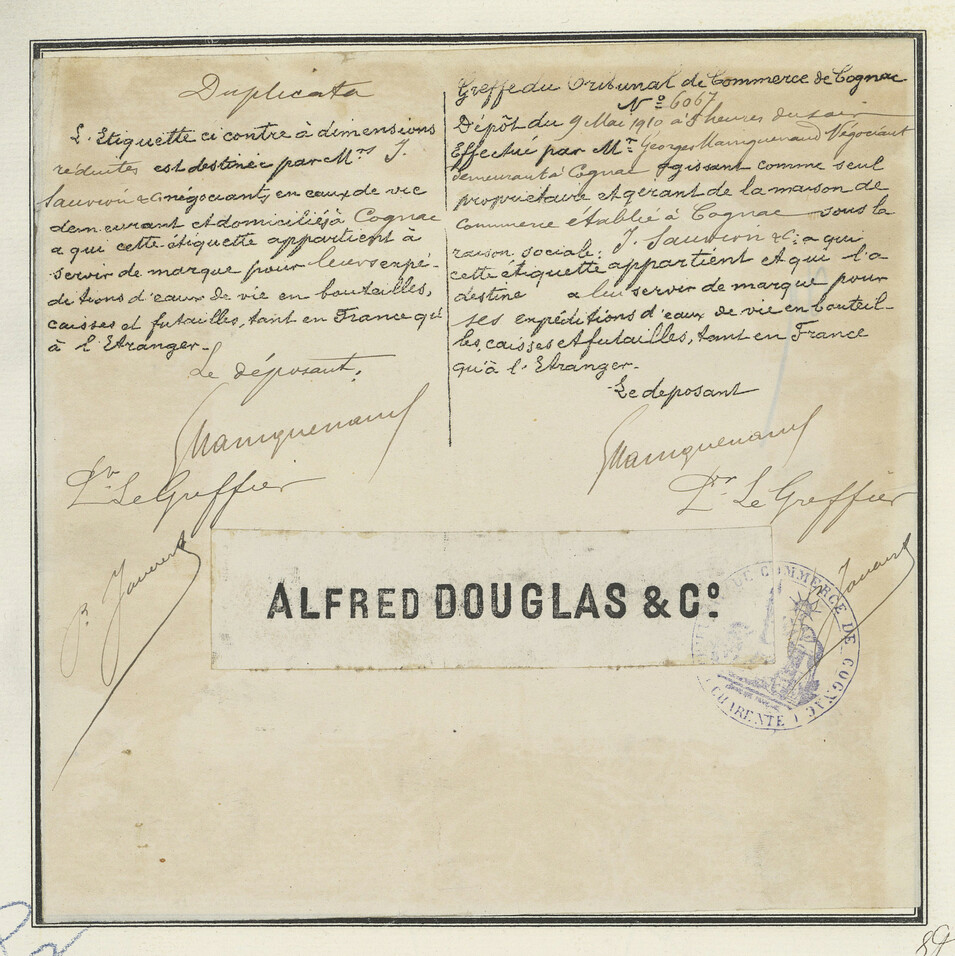 Duplicata
L'Etiquette ci contre à dimensions
réduites est destinée par Mrs J.
Sauvion & Cie négociants en eaux de vie
demeurant et domiciliés à Cognac
a qui cette étiquette appartient à
servir de marque pour leurs expé-
ditions d'eaux de vie en bouteilles,
caisses et futailles, tant en France qu'
à l'Etranger.-
Le déposant,
GMamquenaud
Pr Le Greffier
Greffe du Tribunal de Commerce de Cognac
No 6067
Dépôt du 9 Mai 1910 à 5 heures du soir
Effectué par Mr Georges Mamquenaud Négociant
demeurant à Cognac agissant comme seul
propriétaire et gérant de la maison de
Commerce établie à Cognac sous la
raison sociale: J. Sauvion & Cie a qui
cette étiquette appartient et qui l'a
destine a lui servir de marque pour
ses expéditions d'eaux de vie en bouteil-
les, caisses et futailles, tant en France
qu'à l'Etranger.-
Le deposant
GMamquenaud
Pr Le Greffier
ALFRED DOUGLAS & Co.
COMMERCE DE COGNAC
CHARENTE
89